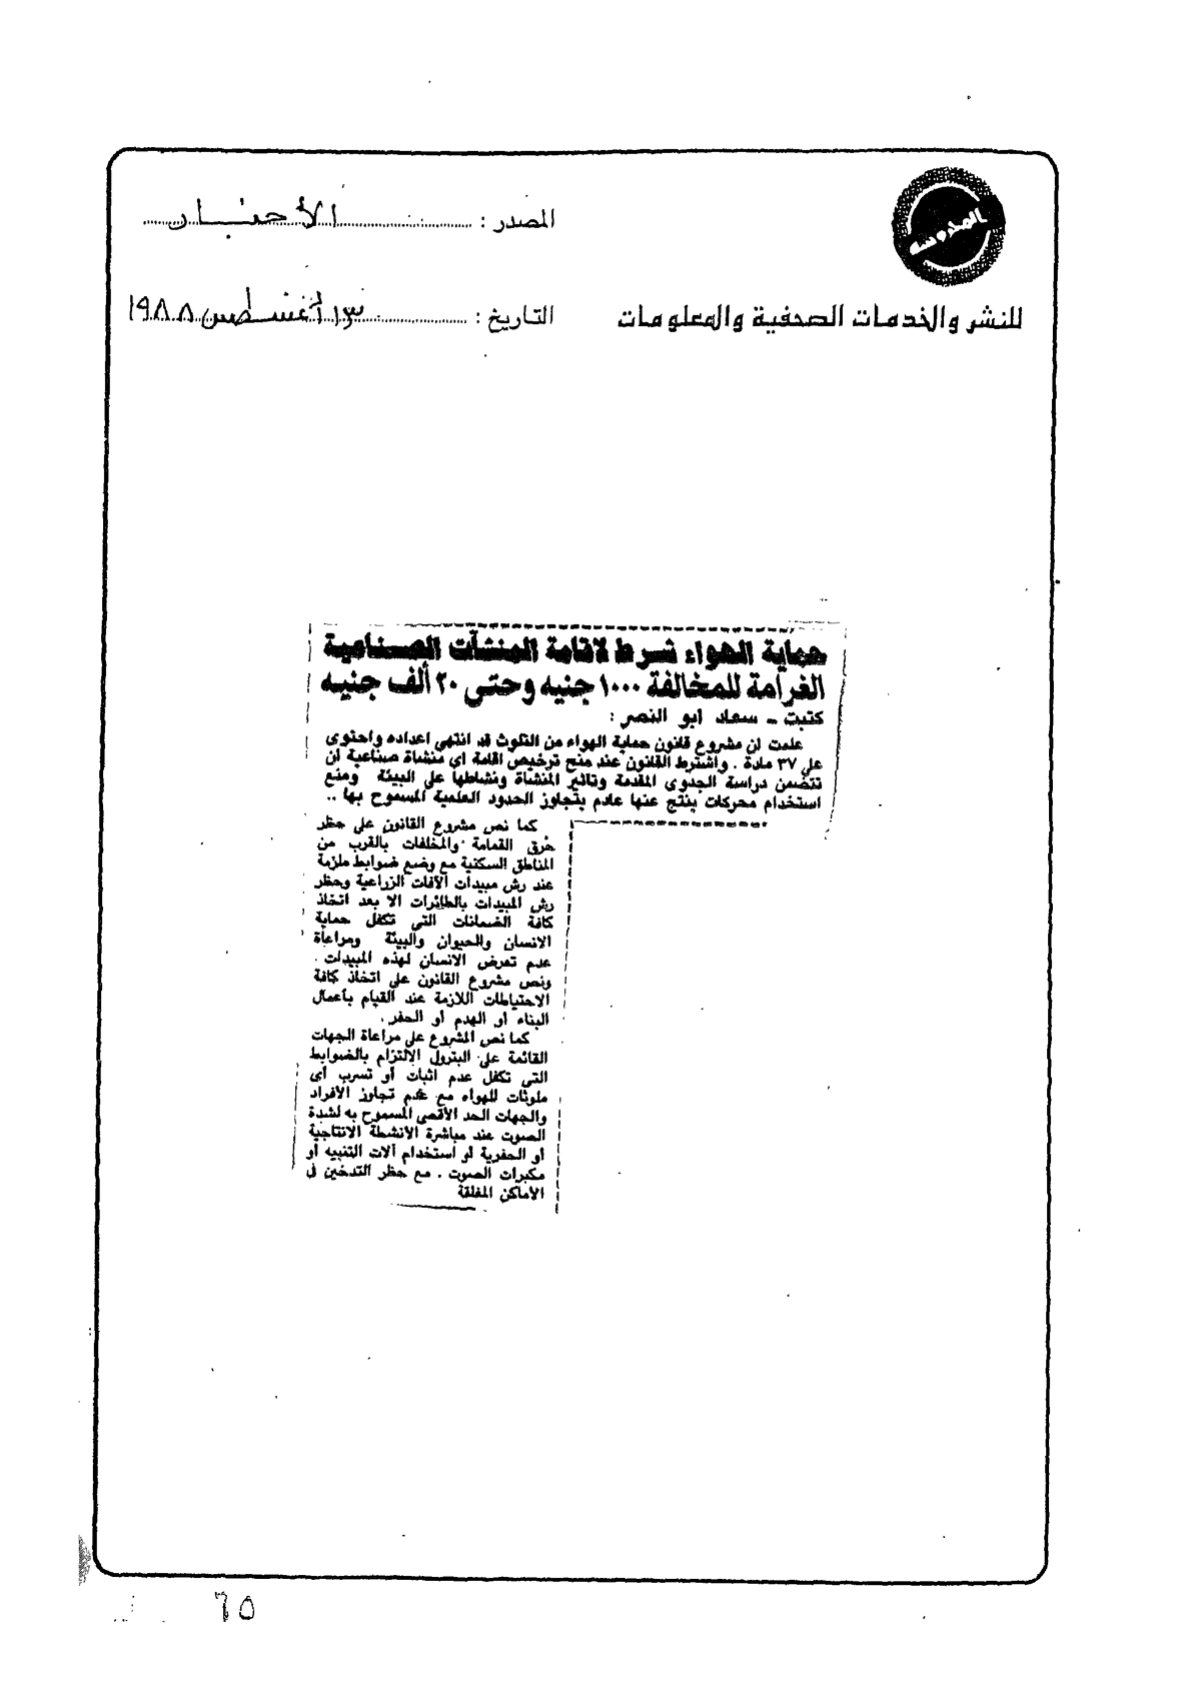 المحروسة
المصدر : الأخبار
للنشر والخدمات الصحفية والمعلومات
التاريخ : ١٣ أغسطس ١٩٨٨
حماية الهواء شرط لاقامة المنشآت الصناعية
الغرامة للمخالفة ١٠٠٠ جنيه وحتى ٢٠ ألف جنيه
كتبت - سعاد ابو النصر :
علمت ان مشروع قانون حماية الهواء من التلوث قد انتهى اعداده واحتوى
على ٣٧ مادة . واشترط القانون عند منح ترخيص اقامة اى منشاة صناعية ان
تتضمن دراسة الجدوى المقدمة وتاثير المنشاة ونشاطها على البيئة ومنع
استخدام محركات ينتج عنها عادم يتجاوز الحدود العلمية المسموح بها ..
كما نص مشروع القانون على حظر
حرق القمامة والمخلفات بالقرب من
المناطق السكنية مع وضع ضوابط ملزمة
عند رش مبيدات الآفات الزراعية وحظر
رش المبيدات بالطائرات الا بعد اتخاذ
كافة الضمانات التى تكفل حماية
الانسان والحيوان والبيئة ومراعاة
عدم تعرض الانسان لهذه المبيدات .
ونص مشروع القانون على اتخاذ كافة
الاحتياطات اللازمة عند القيام بأعمال
البناء أو الهدم أو الحفر .
كما نص المشروع على مراعاة الجهات
القائمة على البترول الالتزام بالضوابط
التى تكفل عدم اثبات أو تسرب أى
ملوثات للهواء مع عدم تجاوز الأفراد
والجهات الحد الأقصى المسموح به لشدة
الصوت عند مباشرة الأنشطة الانتاجية
أو الحفرية أو استخدام آلات التنبيه أو
مكبرات الصوت . مع حظر التدخين فى
الأماكن المغلقة
٦٥